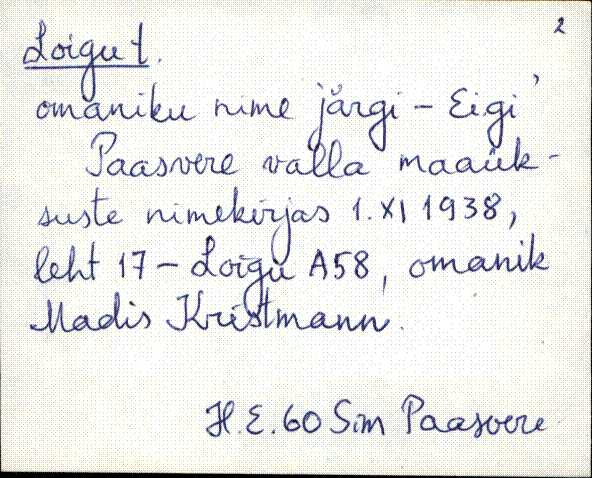 2
Loigu t.
omaniku nime järgi - Eigi'
Paasvere valla maaük-
suste nimekirjas 1. XI 1938,
leht 17 - Loigu A58, omanik
Madis Kristmann.
H. E. 60 Sim Paasvere